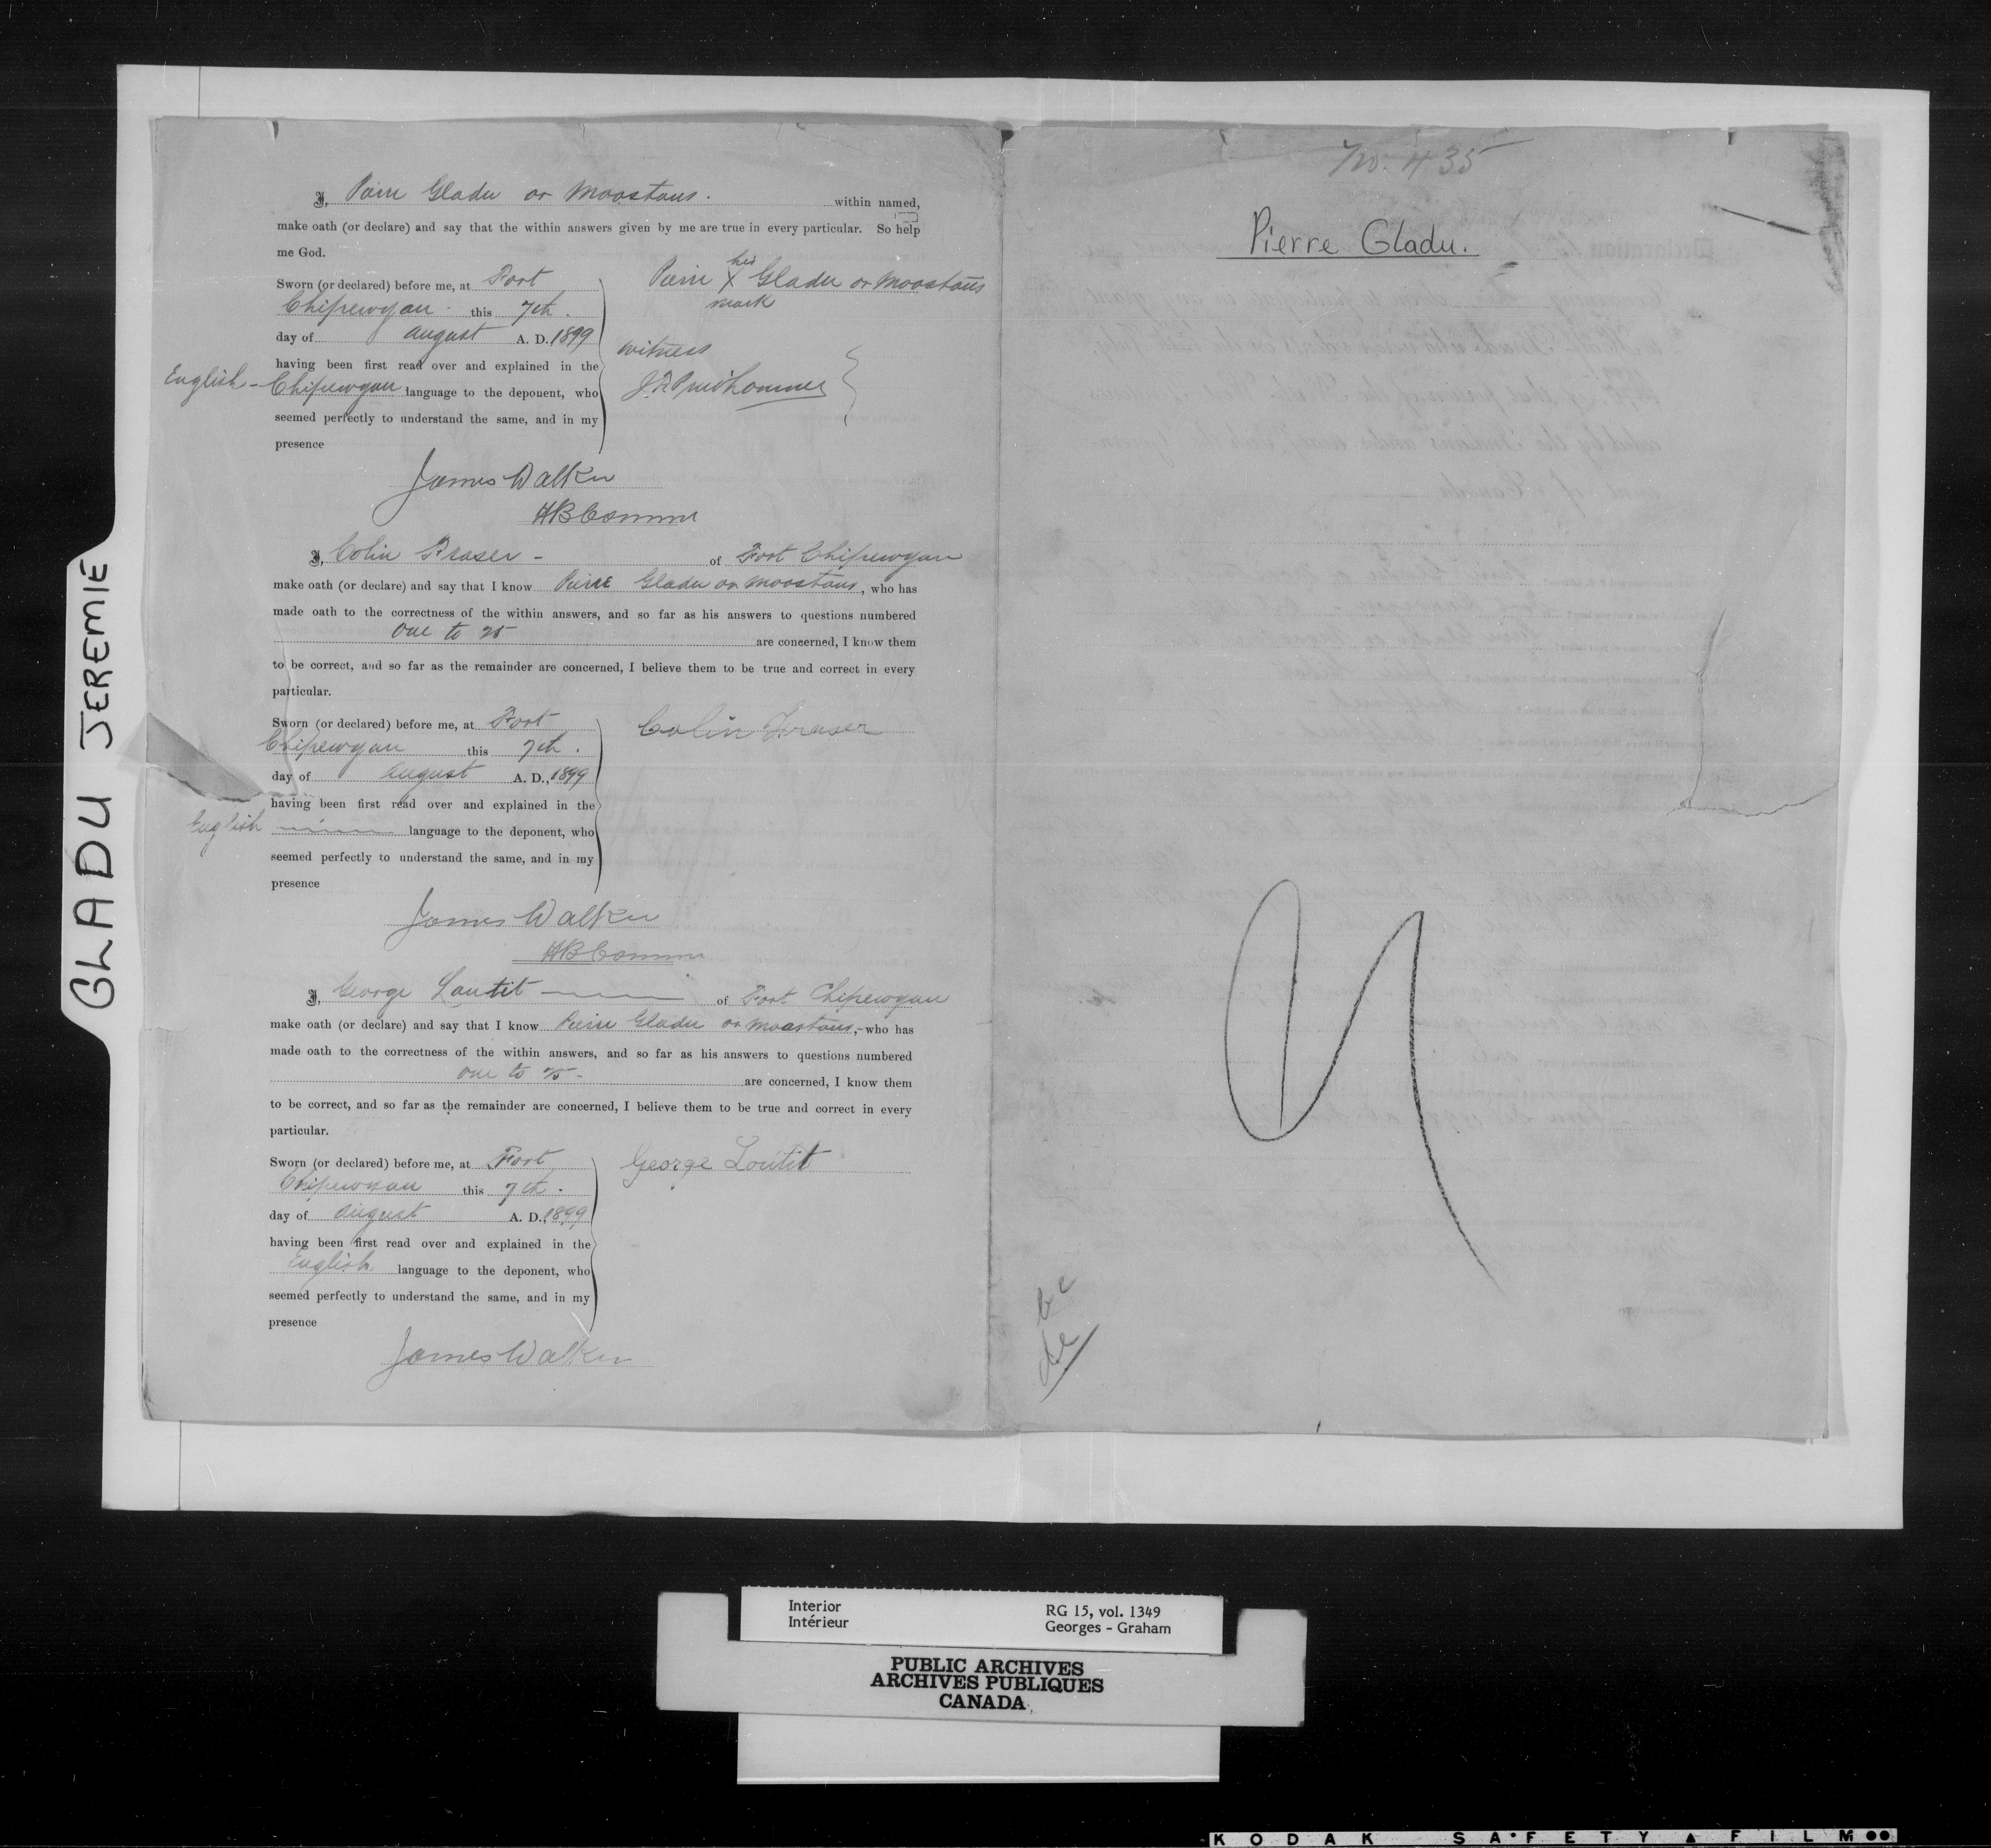 GLADU JEREMIE
I, Pierre Gladu or Moostous. within named,
make oath (or declare) and say that the within answers given by me are true in every particular. So help
me God.
Sworn (or declared) before me, at Fort
Chipewyan this 7th.
day of August A. D. 1899
having been first read over and explained in the
English - Chipewyan language to the deponent, who
seemed perfectly to understand the same, and in my
presence
Pierre his X mark Gladu or Moostous
witness
Prudhomme
James Walker
HB Commr
I, Colin Fraser - of Fort Chipewyan
make oath (or declare) and say that I know Pierre Gladu or Moostous, who has
made oath to the correctness of the within answers, and so far as his answers to questions numbered
one to 25 are concerned, I know them
to be correct, and so far as the remainder are concerned, I believe them to be true and correct in every
particular.
Sworn (or declared) before me, at Fort
Chipewyan this 7th.
day of August A. D., 1899
having been first read over and explained in the
English language to the deponent, who
seemed perfectly to understand the same, and in my
presence
Colin Fraser
James Walker
HB Commr
I, George Loutit of Fort Chipewyan
make oath (or declare) and say that I know Pierre Gladu or Moostous, who has
made oath to the correctness of the within answers, and so far as his answers to questions numbered
one to 25 - are concerned, I know them
to be correct, and so far as the remainder are concerned, I believe them to be true and correct in every
particular.
Sworn (or declared) before me, at Fort
Chipewyan this 7th.
day of August A. D., 1899
having been first read over and explained in the
English language to the deponent, who
seemed perfectly to understand the same, and in my
presence
George Loutit
James Walker
No. 435
Pierre Gladu.
Interior
Intérieur
RG 15, vol. 1349
Georges - Graham
PUBLIC ARCHIVES
ARCHIVES PUBLIQUES
CANADA
KODAK SAFETY FILM